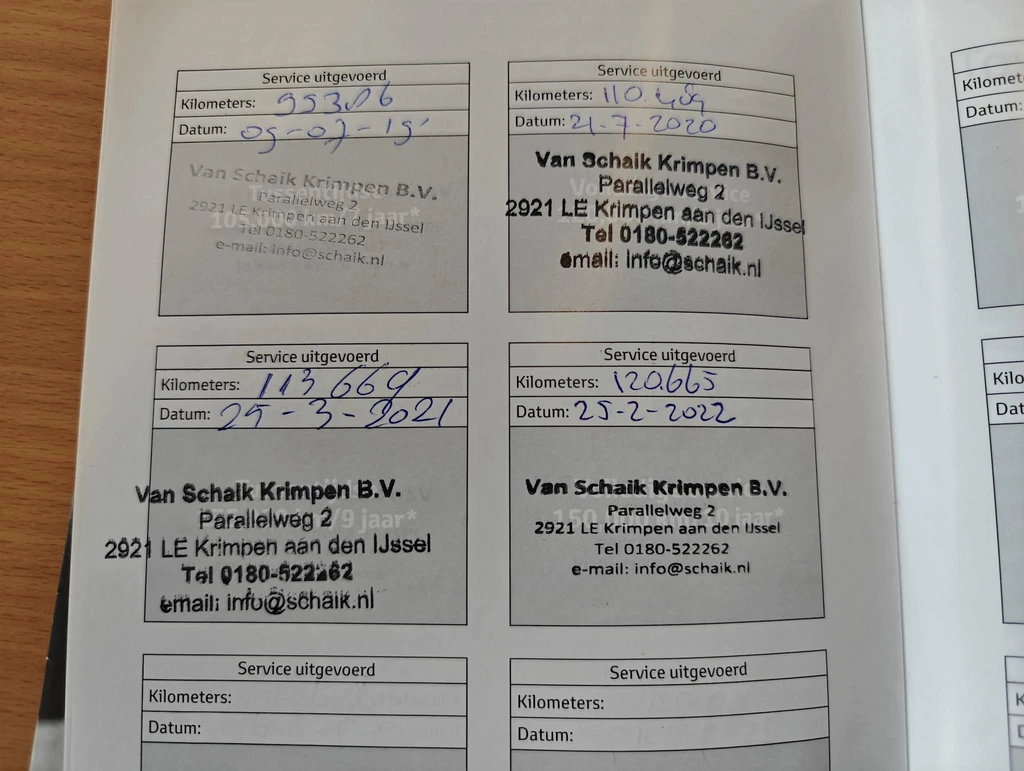 Service uitgevoerd
Kilometers: 99306
Datum: 09-07-19
Van Schaik Krimpen B.V.
Parallelweg 2
2921 LE Krimpen aan den IJssel
Tel 0180-522262
e-mail: info@schaik.nl
Service uitgevoerd
Kilometers: 110.409
Datum: 21-7-2020
Van Schaik Krimpen B.V.
Parallelweg 2
2921 LE Krimpen aan den IJssel
Tel 0180-522262
email: info@schaik.nl
Service uitgevoerd
Kilometers: 113669
Datum: 25-3-2021
Van Schaik Krimpen B.V.
Parallelweg 2
2921 LE Krimpen aan den IJssel
Tel 0180-522262
email: info@schaik.nl
Service uitgevoerd
Kilometers: 120.665
Datum: 25-2-2022
Van Schaik Krimpen B.V.
Parallelweg 2
2921 LE Krimpen aan den IJssel
Tel 0180-522262
e-mail: info@schaik.nl
Service uitgevoerd
Kilometers:
Datum:
Service uitgevoerd
Kilometers:
Datum: